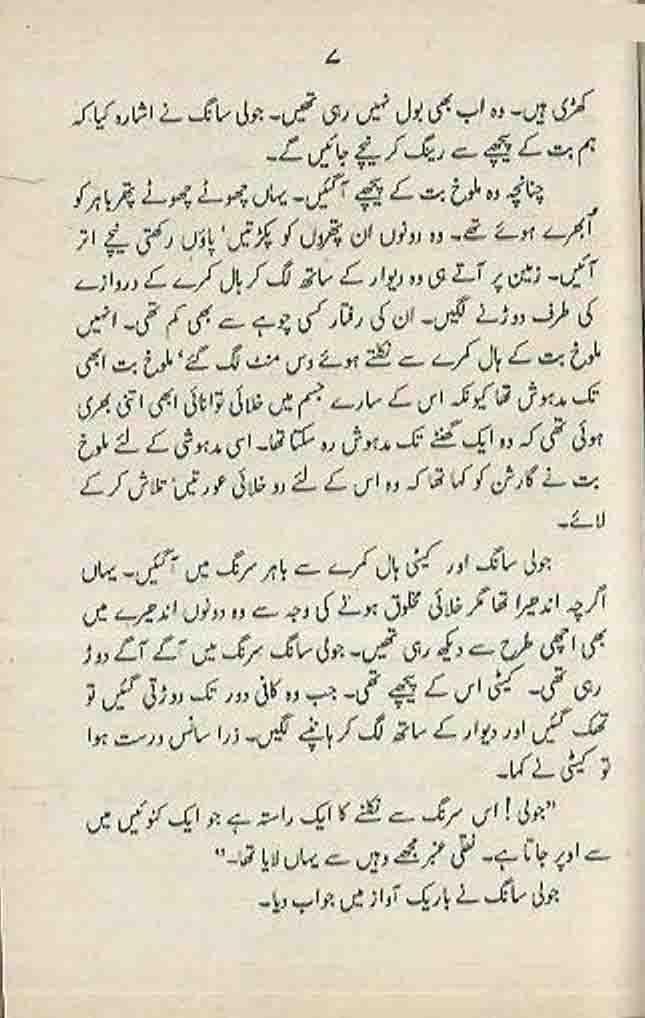 ۷
کھڑی ہیں۔ وہ اب بھی بول نہیں رہی تھیں۔ جولی سانگ نے اشارہ کیا کہ
ہم بت کے پیچھے سے رینگ کر نیچے جائیں گے۔
چنانچہ وہ ملوخ بت کے پیچھے آ گئیں۔ یہاں چھوٹے چھوٹے پتھر باہر کو
اُبھرے ہوئے تھے۔ وہ دونوں ان پتھروں کو پکڑتیں' پاؤں رکھتی نیچے اتر
آئیں۔ زمین پر آتے ہی وہ دیوار کے ساتھ لگ کر ہال کمرے کے دروازے
کی طرف دوڑنے لگیں۔ ان کی رفتار کسی چوہے سے بھی کم تھی۔ انہیں
ملوخ بت کے ہال کمرے سے نکلتے ہوئے دس منٹ لگ گئے' ملوخ بت ابھی
تک مدہوش تھا کیونکہ اس کے سارے جسم میں خلائی توانائی ابھی اتنی بھری
ہوئی تھی کہ وہ ایک گھنٹے تک مدہوش رہ سکتا تھا۔ اسی مدہوشی کے لئے ملوخ
بت نے گارشن کو کہا تھا کہ وہ اس کے لئے دو خلائی عورتیں' تلاش کر کے
لائے۔
جولی سانگ اور کیٹی ہال کمرے سے باہر سرنگ میں آ گئیں۔ یہاں
اگرچہ اندھیرا تھا مگر خلائی مخلوق ہونے کی وجہ سے وہ دونوں اندھیرے میں
بھی اچھی طرح سے دیکھ رہی تھیں۔ جولی سانگ سرنگ میں آگے آگے دوڑ
رہی تھی۔ کیٹی اس کے پیچھے تھی۔ جب وہ کافی دور تک دوڑتی گئیں تو
تھک گئیں اور دیوار کے ساتھ لگ کر ہانپنے لگیں۔ ذرا سانس درست ہوا
تو کیٹی نے کہا۔
"جولی! اس سرنگ سے نکلنے کا ایک راستہ ہے جو ایک کنوئیں میں
سے اوپر جاتا ہے۔ نقلی عنبر مجھے وہیں سے یہاں لایا تھا۔"
جولی سانگ نے باریک آواز میں جواب دیا۔